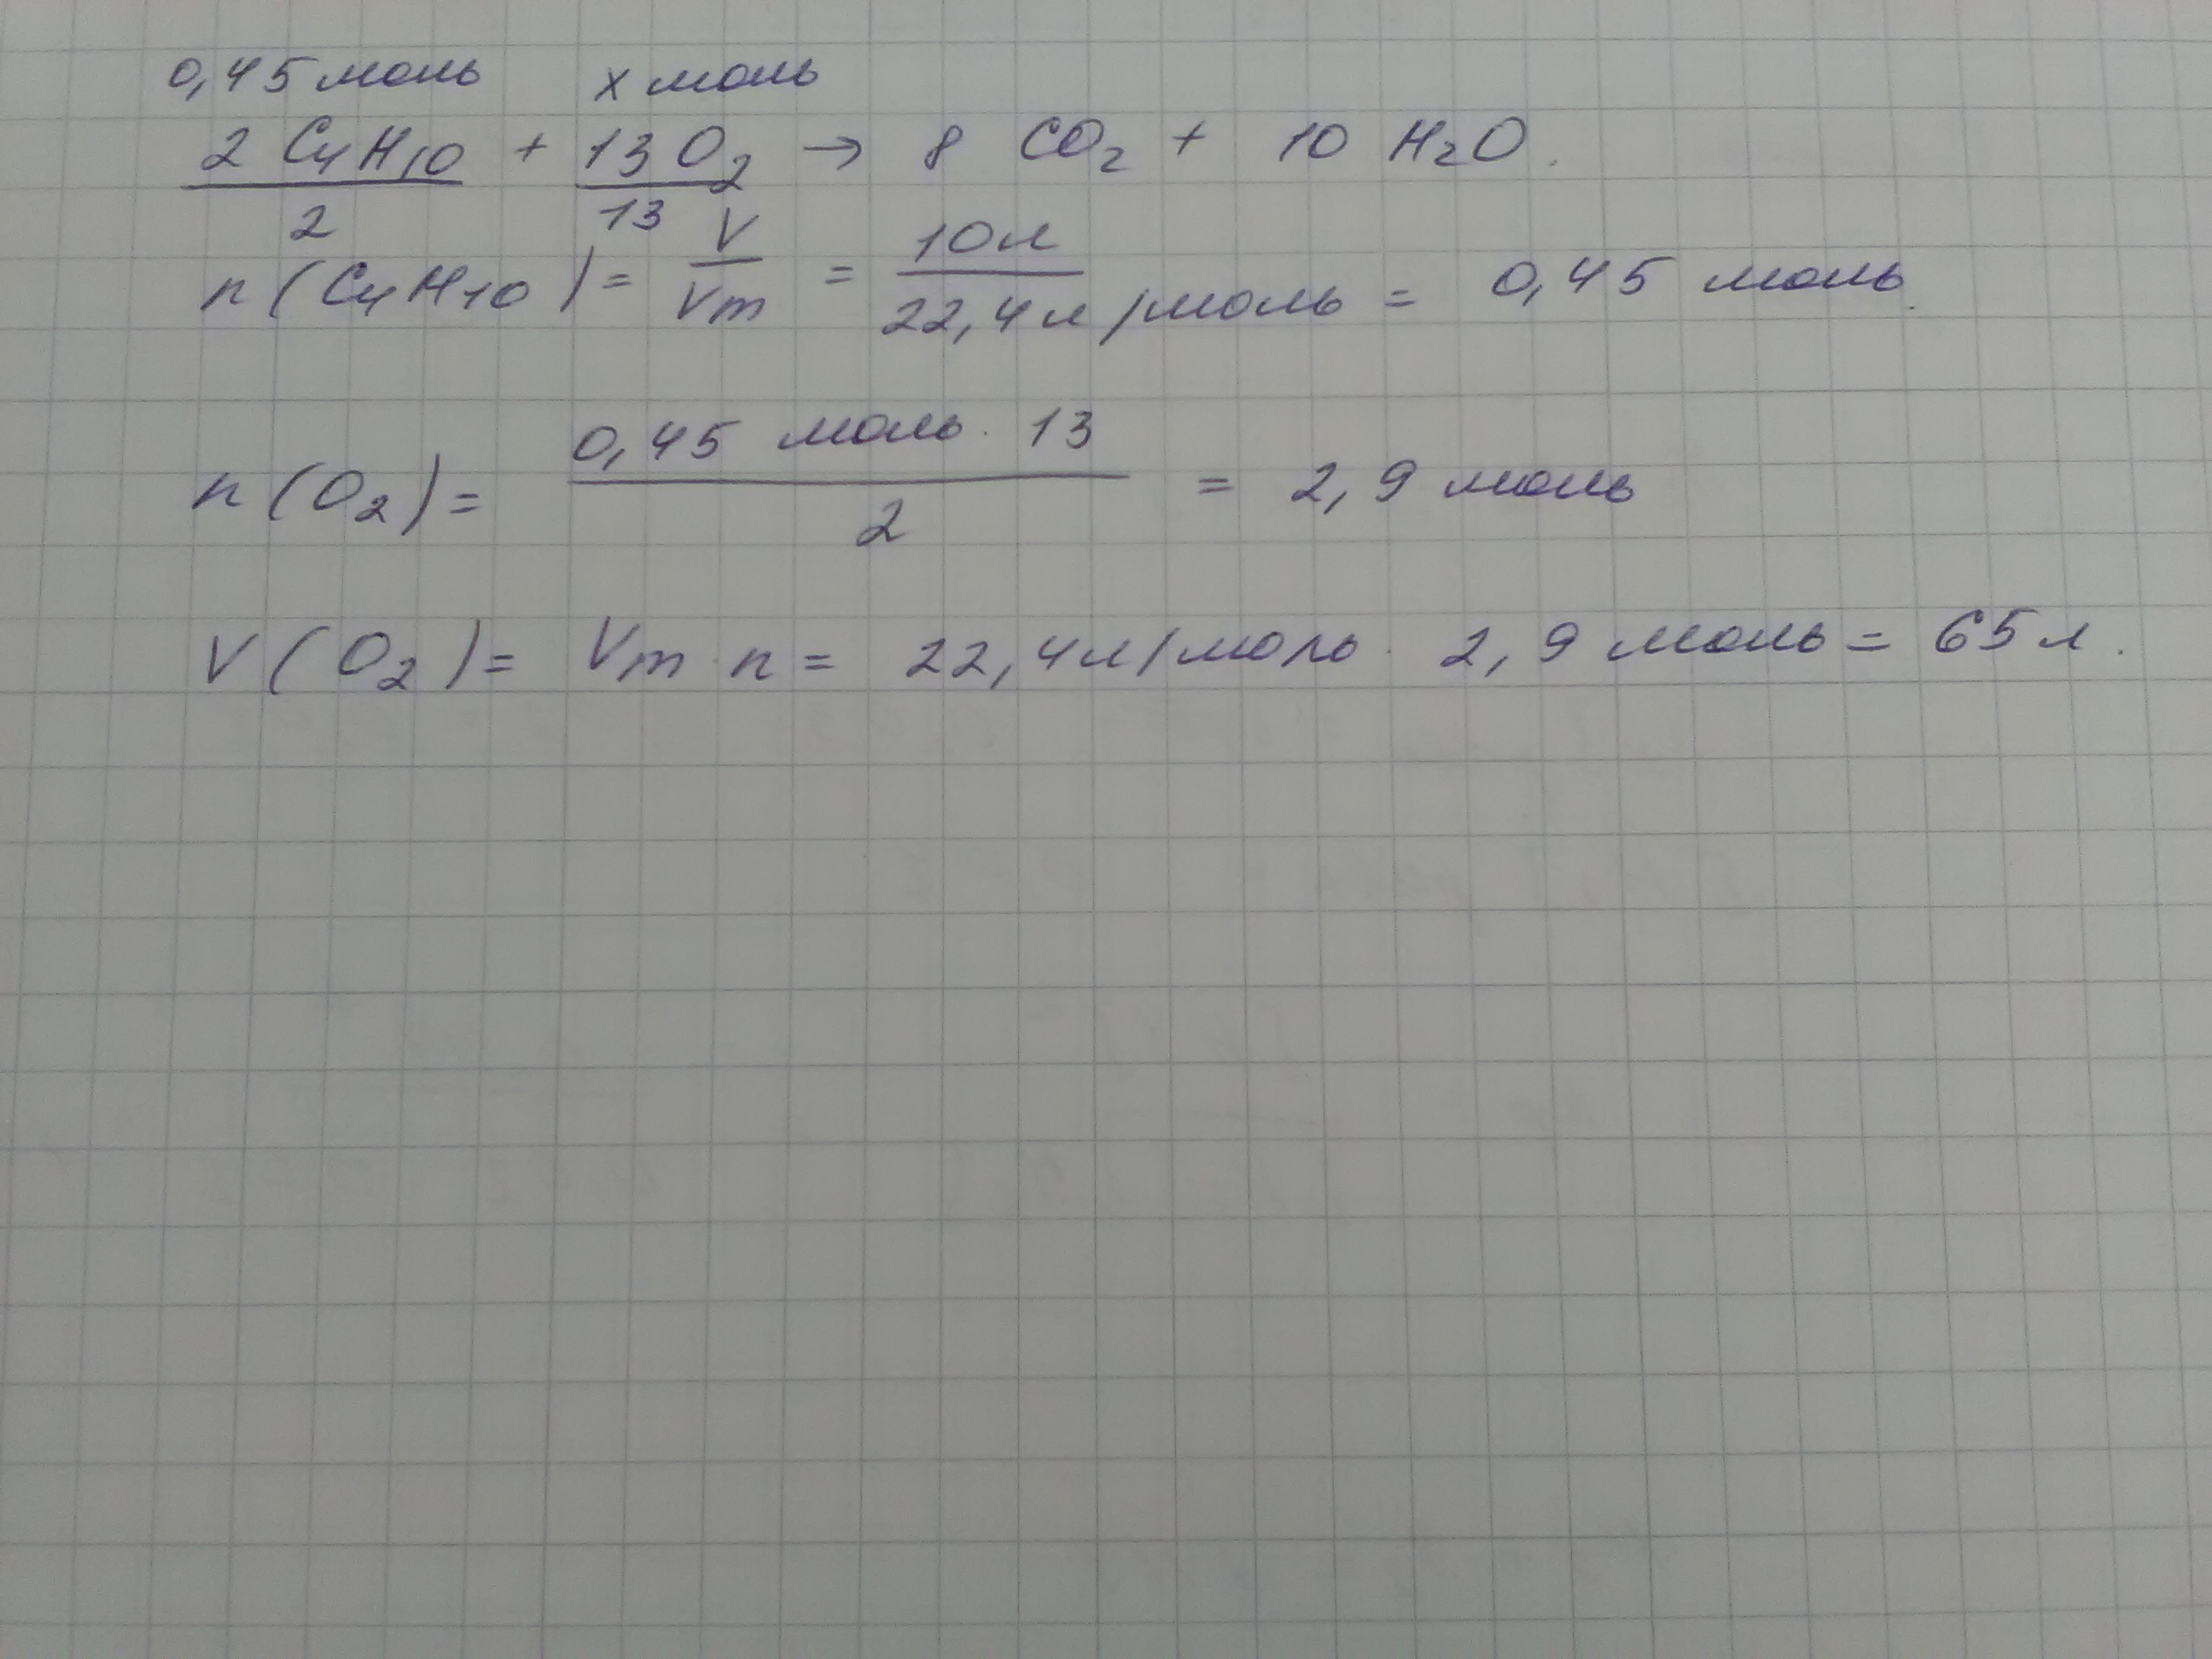 0,45 моль x моль
2 C₄H₁₀ + 13 O₂ → 8 CO₂ + 10 H₂O.
2 13
n (C₄H₁₀) = V/Vm = 10 л / 22,4 л/моль = 0,45 моль.
n (O₂) = 0,45 моль · 13 / 2 = 2,9 моль
V (O₂) = Vm · n = 22,4 л/моль · 2,9 моль = 65 л.